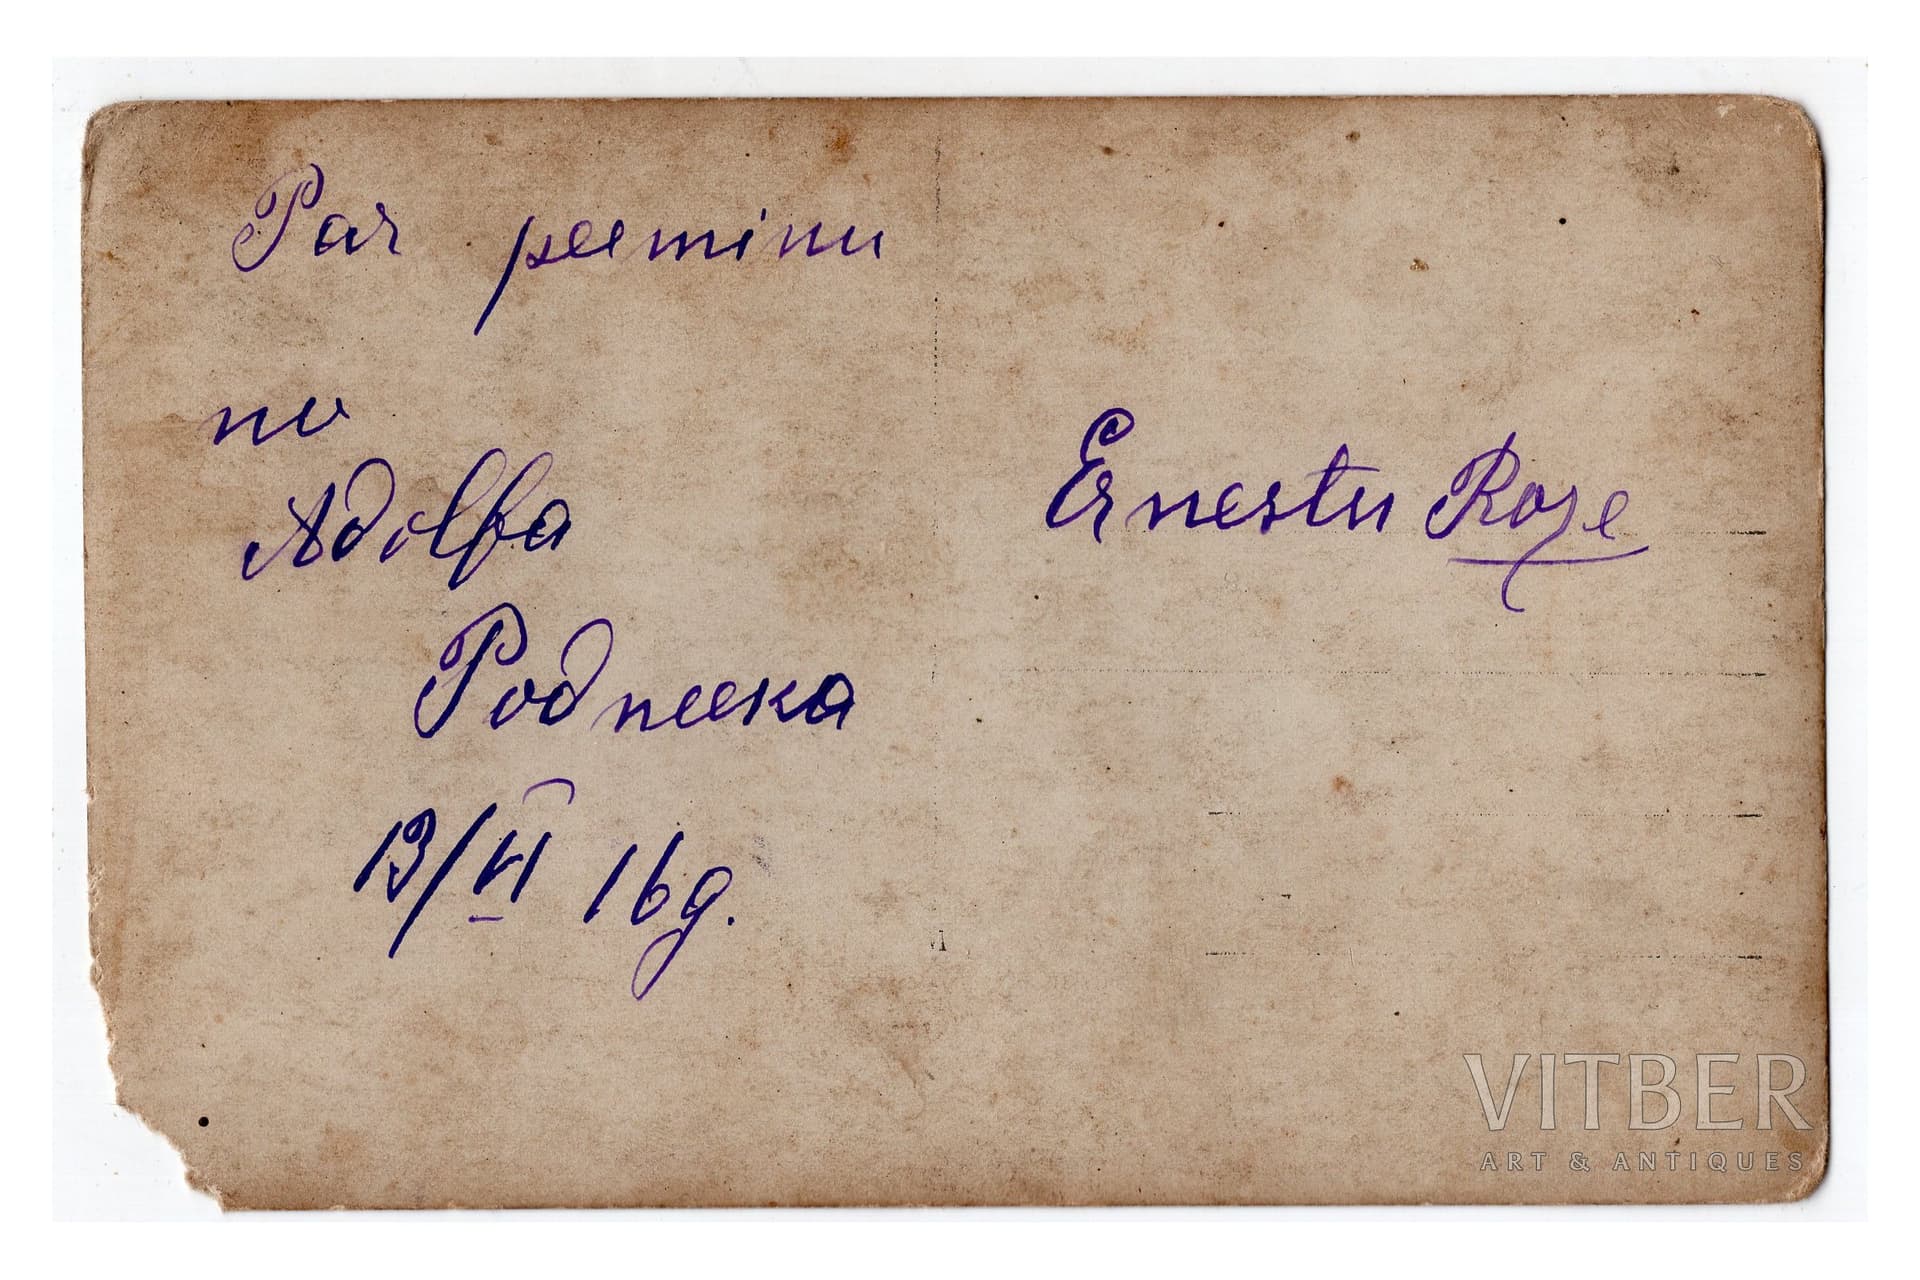 Par peeminu
no
Adolfa
Podneeka
13/VI 16g.
Ernestu Roze
VITBER
ART & ANTIQUES